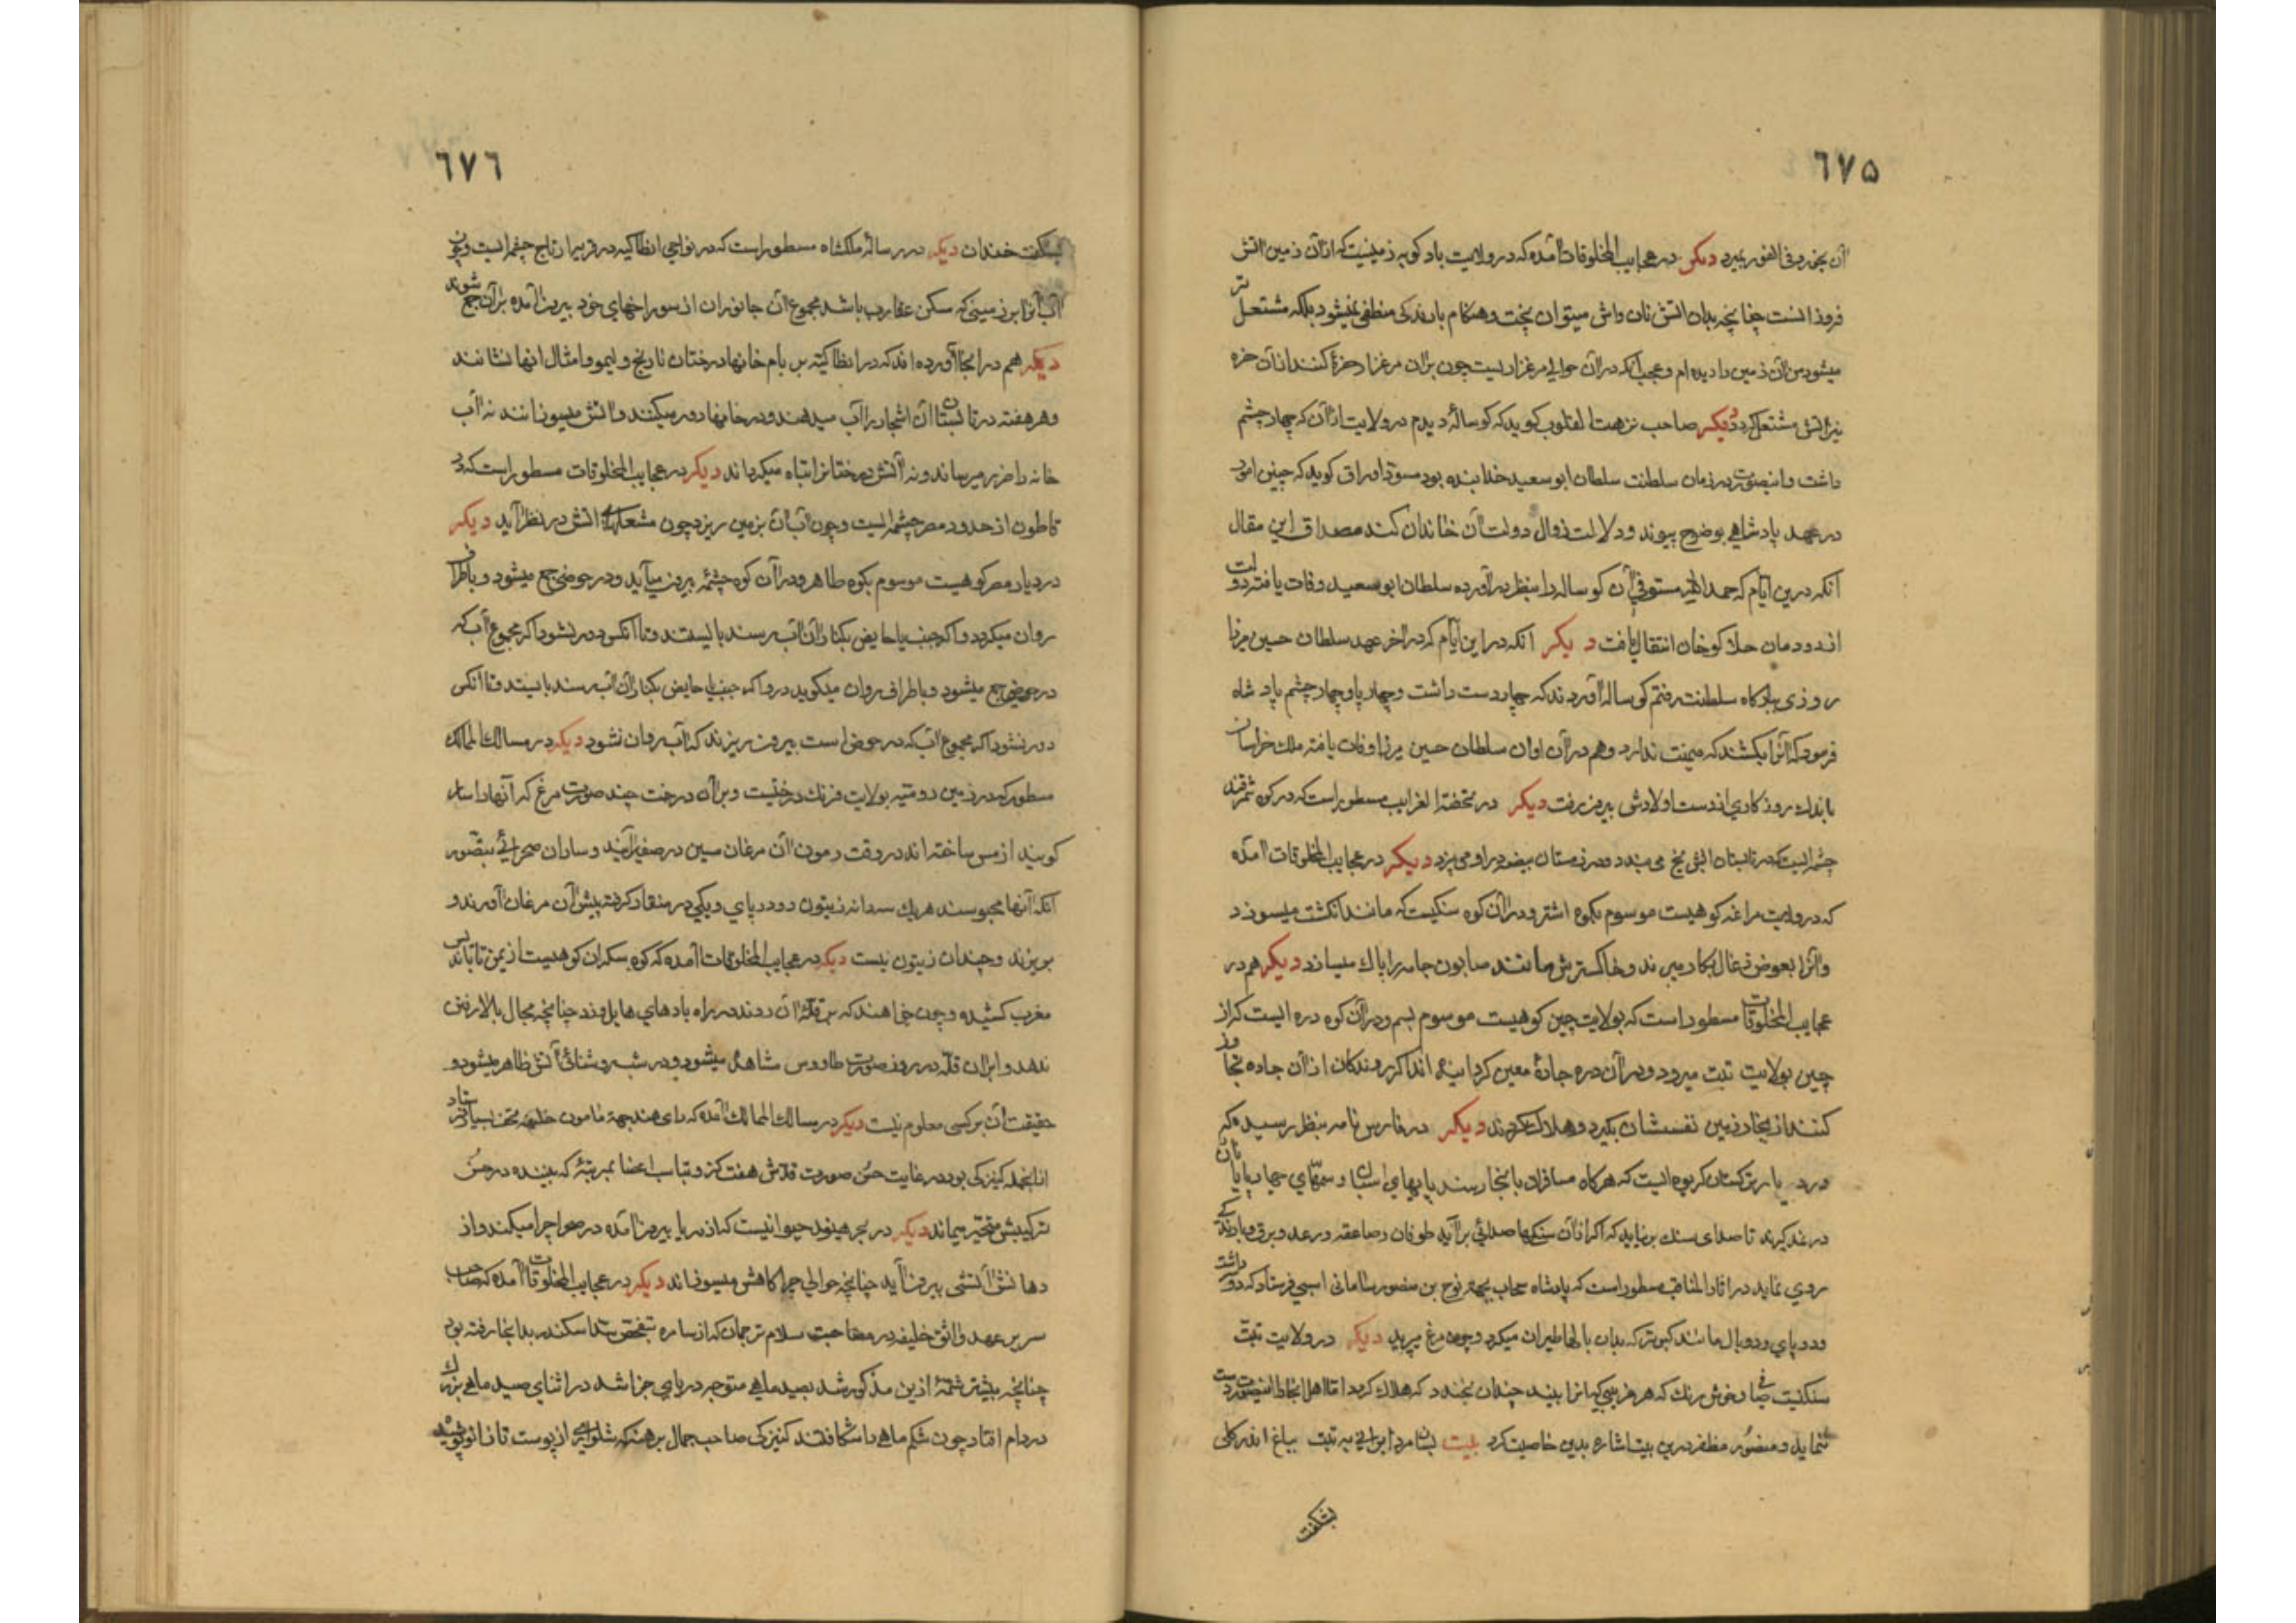 ٦٧٥
آن بخورد فی الفور بمیرد دیکر در عجایب المخلوقات آمده که در ولایت بادکوبه زمینیست که از آن زمین اتش
فروزانست چنانچه بدان اتش نان واش میتوان پخت و هنکام بارندکی منطفی نمیشود بلکه مشتعل تر
میشود من آن زمین را دیده ام و عجب آنکه در آن حوالی مرغزاریست چون بر آن مرغزار حفرۀ کنند از آن حفره
نیز اتش مشتعل کردد دیکر صاحب نزهت القلوب کوید که کوسالۀ دیدم در ولایت ازان که چهار چشم
داشت و اینصورت در زمان سلطنت سلطان ابو سعید خدابنده بود مسود اوراق کوید که چنین امور
در عهد پادشاهی بوضوح پیوند و دلالت زوال دولت آن خاندان کند مصداق این مقال
آنکه درین ایام که حمد الله مستوفی آن کوساله را بنظر در آورده سلطان ابو سعید وفات یافته دولت
از دودمان هلاکو خان انتقال یافت دیکر انکه در این ایام که در اخر عهد سلطان حسین مرزا
روزی ببارکاه سلطنت رفتم کوساله آوردند که چهار دست داشت و چهار پا و چهار چشم پادشاه
فرمود که آنرا بکشند که میمنت ندارد وهم در آن اوان سلطان حسین مرزا وفات یافته ملک خراسان
باندك روزکاری از دست اولادش بیرون رفت دیکر در تحفة الغرایب مسطور است که در کوه سمرقند
چشمه ایست که در تابستان ابش یخ می بندد و در زمستان بیضه در او می پزد دیکر در عجایب المخلوقات آمده
که در ولایت مراغه کوهیست موسوم بکوه اشتر و در آن کوه سنکیست که مانند انکشت میسوزد
و آنرا بعوض زغال بکار میبرند و خاکسترش مانند صابون جامه را پاك میسازد دیکر هم در
عجایب المخلوقات مسطور است که بولایت چین کوهیست موسوم بسم و در آن کوه دره ایست که از
چین بولایت تبت میرود و در آن دره جادۀ معین کردانیده اند اکر روندکان از آن جاده تجاوز
کنند از بخار زمین نفسشان بکیرد و هلاك کردند دیکر در فارس نامه بنظر رسیده که
در دیار ترکستان کریوه ایست که هرکاه مسافران بانجا رسند پایهای اسبان و سمهای چهارپایان
در نمد کیرند تا صدای سنك برنیاید که اکر از آن سنکها صدائی بر آید طوفان و صاعقه و رعد و برق و بارندکی
روی نماید در اثار المناقب مسطور است که پادشاه بجهة نوح بن منصور سامانی اسبی فرستاد که دو داشت
و دو پای و دو بال مانند کبوتر که بدان بالها طیران میکرد و چون مرغ میپرید دیکر در ولایت تبت
سنکیست صافی و خوش رنك که هر غریبی که آنرا بیند چندان بخندد که هلاك کردد اما اهل انجا را اینصورت دست
ننماید و منصور مظفر درین بیت اشاره بدین خاصیت کرد بیت بسان مرد ابرانی به تبت بباغ اندر کلی
بشکفت
٦٧٦
بشکفت خندان دیکر در رسالۀ ملکشاه مسطور است که در نواحی انطاکیه در قریه ارتاج چشمه ایست و چون
آب آنرا بر زمینی که مسکن عقارب باشد مجموع آن جانوران از سوراخهای خود بیرون آمده بر آن جمع شوند
دیکر هم در انجا آورده اند که در انطاکیه بر بام خانها درختان نارنج و لیمو و امثال انها نشانند
و هر هفته در تابستان آن اشجار را آب میدهند و در خانها دود میکنند و اتش میسوزانند نه آب
خانه را ضرر میرساند و نه آتش درختانرا تباه میکرداند دیکر در عجایب المخلوقات مسطور است که در
قاطون از حدود مصر چشمه ایست و چون آب آن بزمین ریزد چون مشعلهای اتش در نظر آید دیکر
در دیار مصر کوهیست موسوم بکوه طاهر و در آن کوه چشمۀ بیرون میآید و در حوضی جمع میشود و باطراف
روان میکردد و اکر جنب یا حایض بکنار آن آب رسند بایستد و تا آنکس دور نشود اکر مجموع آب که
در حوض جمع میشود و باطراف روان میکردد و اکر جنب یا حایض بکنار آن آب رسند بایستد و تا آنکس
دور نشود اکر مجموع آب که در حوض است بیرون ریزند که آب روان نشود دیکر در مسالك الممالك
مسطور که در زمین رومیه بولایت فرنك درختیست و بر آن درخت چند صورت مرغ که آنها را سار
کویند از مس ساخته اند در وقت رسیدن آن مرغان مسین در صفیر آیند و ساران صحرائی بتصور
آنکه آنها محبوسند هریك سه دانه زیتون دو در پای و یکی در منقار کرفته پیش آن مرغان آورند و
بریزند و چندان زیتون نیست دیکر در عجایب المخلوقات آمده که کوه سکران کوهیست از یمن تا بابند پس
مغرب کشیده و چون خواهند که بر قلۀ آن روند در راه بادهای هایل وزد چنانچه مجال بالا رفتن
ندهد و بر آن قله در روز صورت طاووس مشاهده میشود و در شب روشنائی آتش ظاهر میشود و
حقیقت آن بر کسی معلوم نیست دیکر در مسالك الممالك آمده که رای هند بجهة مامون خلیفه تحف بسیار فرستاد
از انجمله کنیزکی بود در غایت حسن صورت قدش هفت کز و تناسب اعضا بمرتبۀ که بیننده در حسن
ترکیبش متحیر میماند دیکر در بحر هند حیوانیست که از دریا بیرون آمده در صحرا چرا میکند و از
دهانش آتشی بیرون آید چنانچه حوالی چراکاهش میسوزاند دیکر در عجایب المخلوقات آمده که صاحب
سریر عهد واثق خلیفه در مصاحبت سلام ترجمان که از سامره تفحص سد اسکندر بدانجا رفته بود
چنانچه بیشتر شمۀ ازین مذکور شد بصید ماهی متوجه دریای خزر شد در اثنای صید ماهی بزرك
در دام افتاد چون شکم ماهی را شکافتند کنیزکی صاحب جمال برهنه که شلواری از پوست تا زانو پوشیده